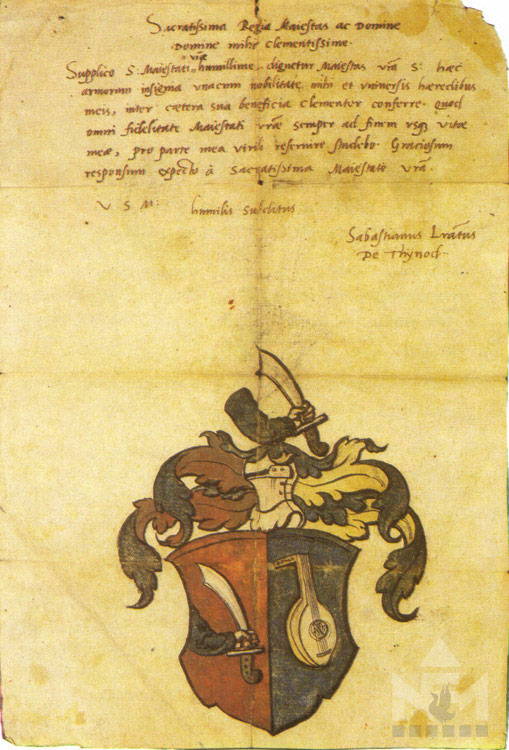 Sacratissima Regia Maiestas ac Domine
Domine mihi Clementissime
Supplico S: Maiestati vrae humillime, dignetur Maiestas vra S: haec
armorum insignia unacum nobilitate mihi et vniuersis haeredibus
meis, inter caetera sua beneficia Clementer conferre. Quod
omni fidelitate Maiestati vrae semper ad finem vsque vitae
meae, pro parte mea virili reseruire studebo. Graciosum
responsum expecto à Sacratissima Maiestate vra.
V S M: humilis subditus
Sabastianus
De Thynod.